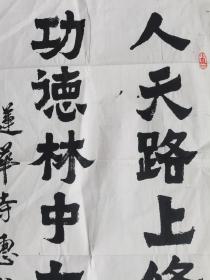 人天路上修
功徳林中
蓮華寺惠